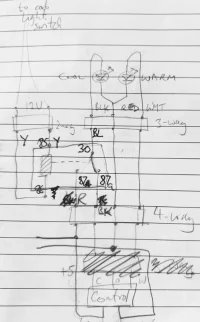 to cab
light
switch
COOL
WARM
12V
BLK RED WHT
2-way
3-way
Y
Y
BL
85
30
86
87a
87
R
BLK
4-way
+5
C
Control